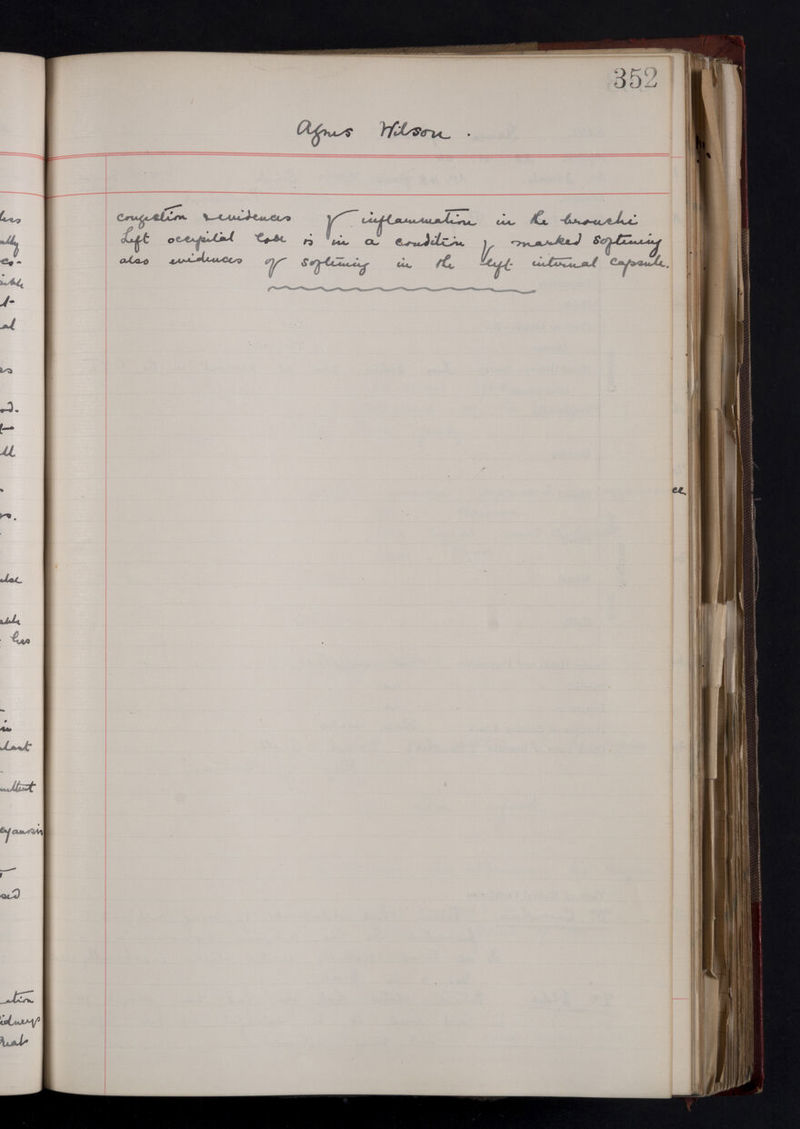 352
Agnes Wilson.
congestion & evidences of inflammation in the bronchi
Left occipital lobe is in a condition of marked softening
also evidences of softening in the left internal capsule.
ally
al
has
in
cyanosis